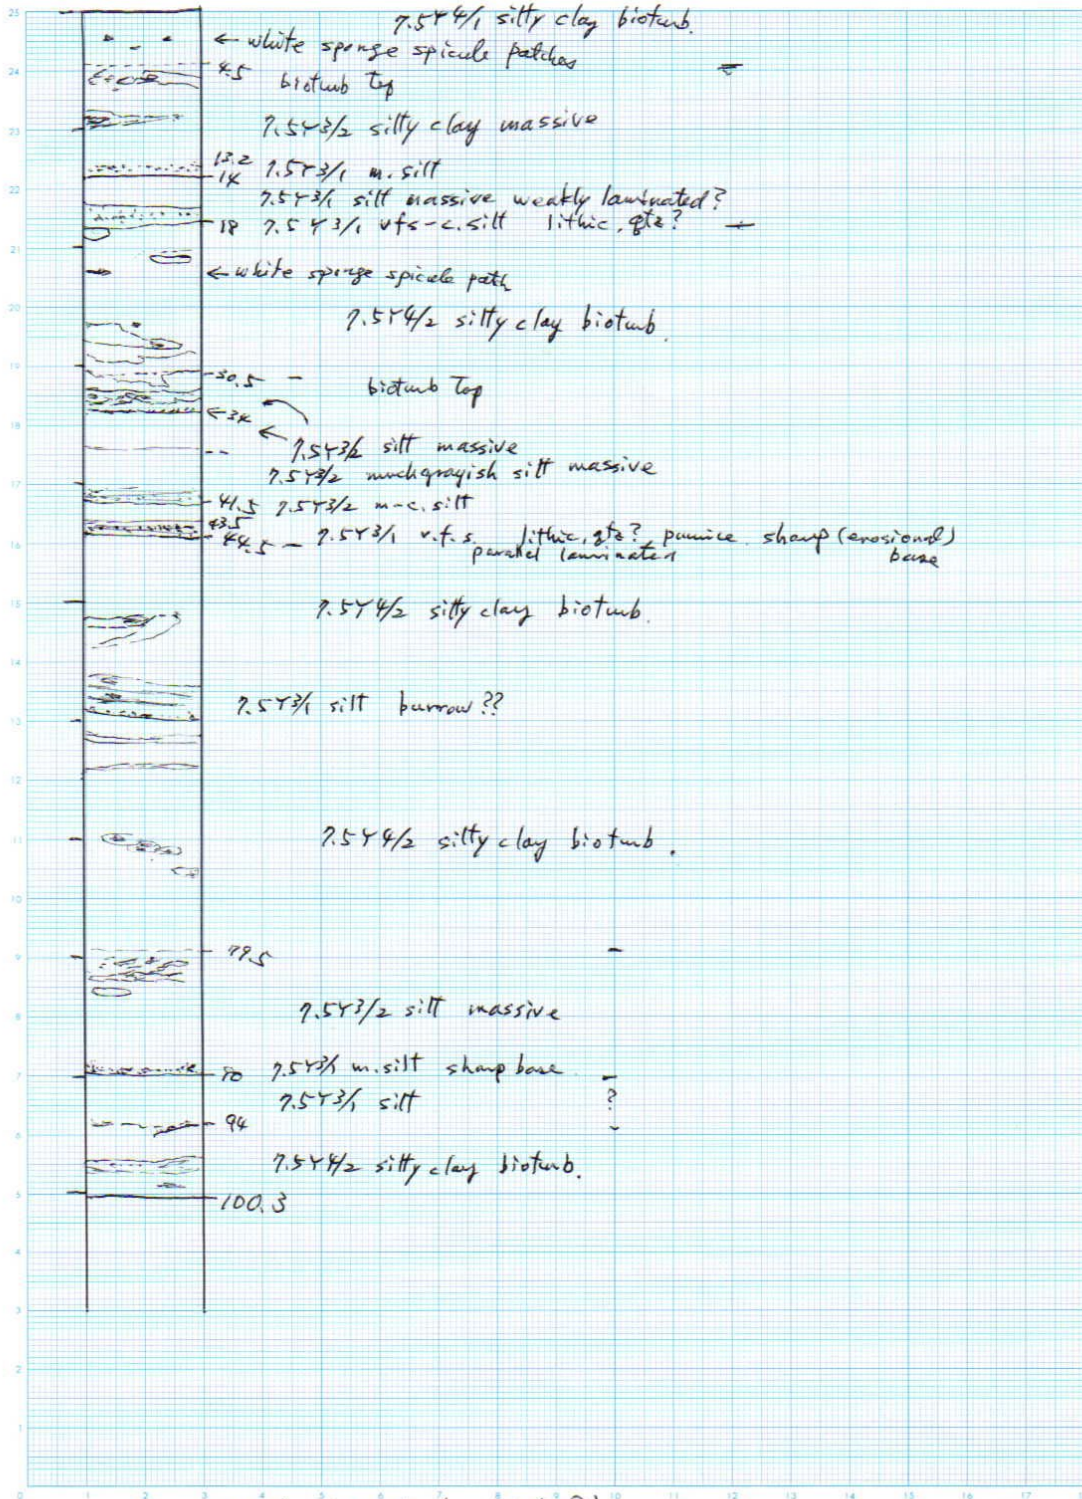 7.5Y4/1 silty clay bioturb.
← white sponge spicule patches
4.5 bioturb top
7.5Y3/2 silty clay massive
13.2 7.5Y3/1 m. silt
14
7.5Y3/1 silt massive weakly laminated?
18 7.5Y3/1 vfs-c. silt lithic, qtz?
← white sponge spicule patch
7.5Y4/2 silty clay bioturb.
30.5 bioturb top
← 34
← 7.5Y3/2 silt massive
7.5Y3/2 muchgrayish silt massive
41.5 7.5Y3/2 m-c. silt
43.5
44.5 7.5Y3/1 v.f.s. lithic, qtz? pumice. sharp (erosional)
parallel laminated base
7.5Y4/2 silty clay bioturb.
7.5Y3/1 silt burrow??
7.5Y4/2 silty clay bioturb.
79.5
7.5Y3/2 silt massive
7.5Y3/1 m. silt sharp base
7.5Y3/1 silt ?
94
7.5Y4/2 silty clay bioturb.
100.3
25
24
23
22
21
20
19
18
17
16
15
14
13
12
11
10
9
8
7
6
5
4
3
2
1
0 1 2 3 4 5 6 7 8 9 10 11 12 13 14 15 16 17